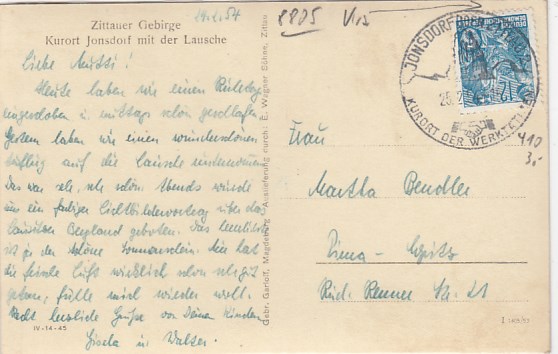 Zittauer Gebirge
Kurort Jonsdorf mit der Lausche
24.2.54
8805 V15
Liebe Mutti!
Heute haben wir einen Ruhetag
eingeschoben u. mittags schön geschlafen
Gestern haben wir einen wunderschönen
Ausflug auf die Lausche unternommen
Das war sehr, sehr schön. Abends wurde
uns ein farbiger Lichtbildervortrag über das
Lausitzer Bergland geboten. Das
ist ja der schöne Sonnenschein. Mir hat
die frische Luft wirklich schon sehr gut
getan, fühle mich wieder wohl.
Recht herzliche Grüße von Deinen Kindern
Gisela u. Walter.
IV-14-45
Gebr. Garloff, Magdeburg Auslieferung durch: E. Wagner Söhne, Zittau
JONSDORF
KURORT DER WERKTÄTIGEN
12
410
3,-
Frau
Martha Bendler
Rud. Renner Str. 21